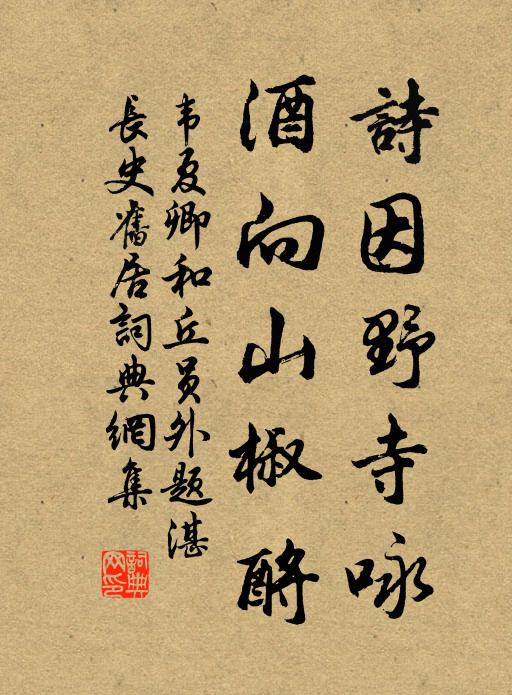 詩因野寺咏
酒向山椒酹
韦夏卿和丘员外题湛
長史舊居詞典網集
詞典网印